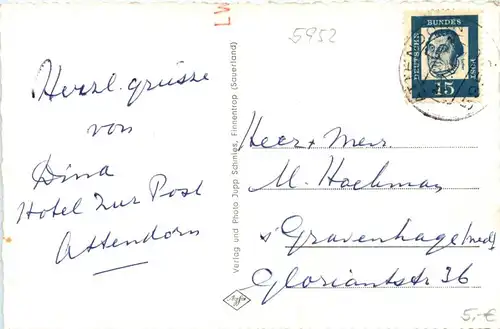 LV
5952
DEUTSCHE
BUNDES
POST
15
Herzl. grüsse
von
Dina
Hotel zur Post
Attendorn
Verlag und Photo Jupp Schmies, Finnentrop (Sauerland)
Heer + Mevr.
M. Hoekman
s' Gravenhage (ned)
Gloriantstr 36
5,-€